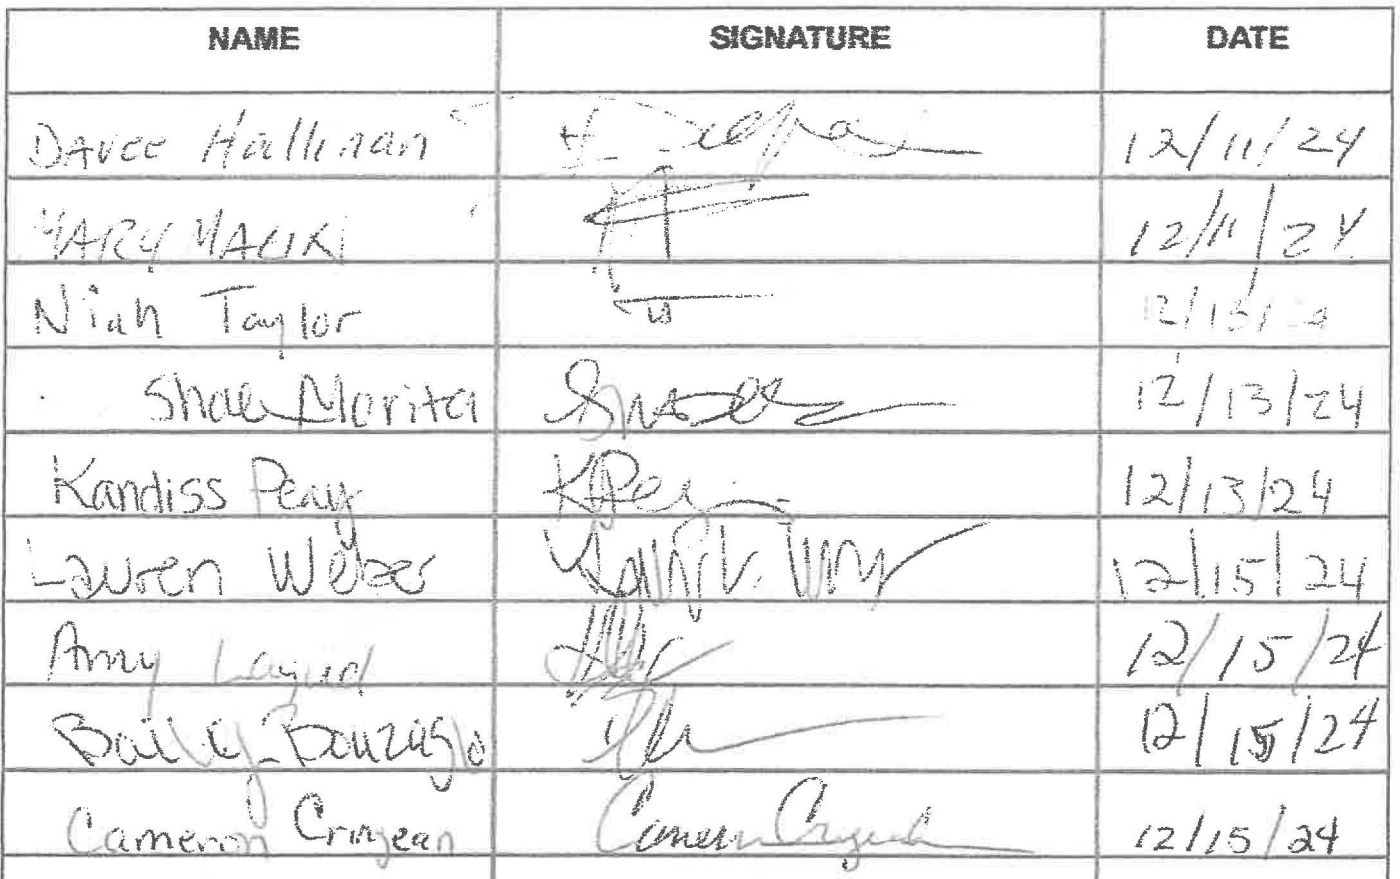 NAME SIGNATURE DATE
DAVEE Hallinan 12/11/24
MARY MALIKI 12/11/24
Niah Taylor 12/13/
Shae Morita 12/13/24
Kandiss Peay KPeay 12/13/24
Lauren Weber 12/15/24
Amy 12/15/24
Baily Bonzaglo 12/15/24
Cameron Crinjean Cameron 12/15/24